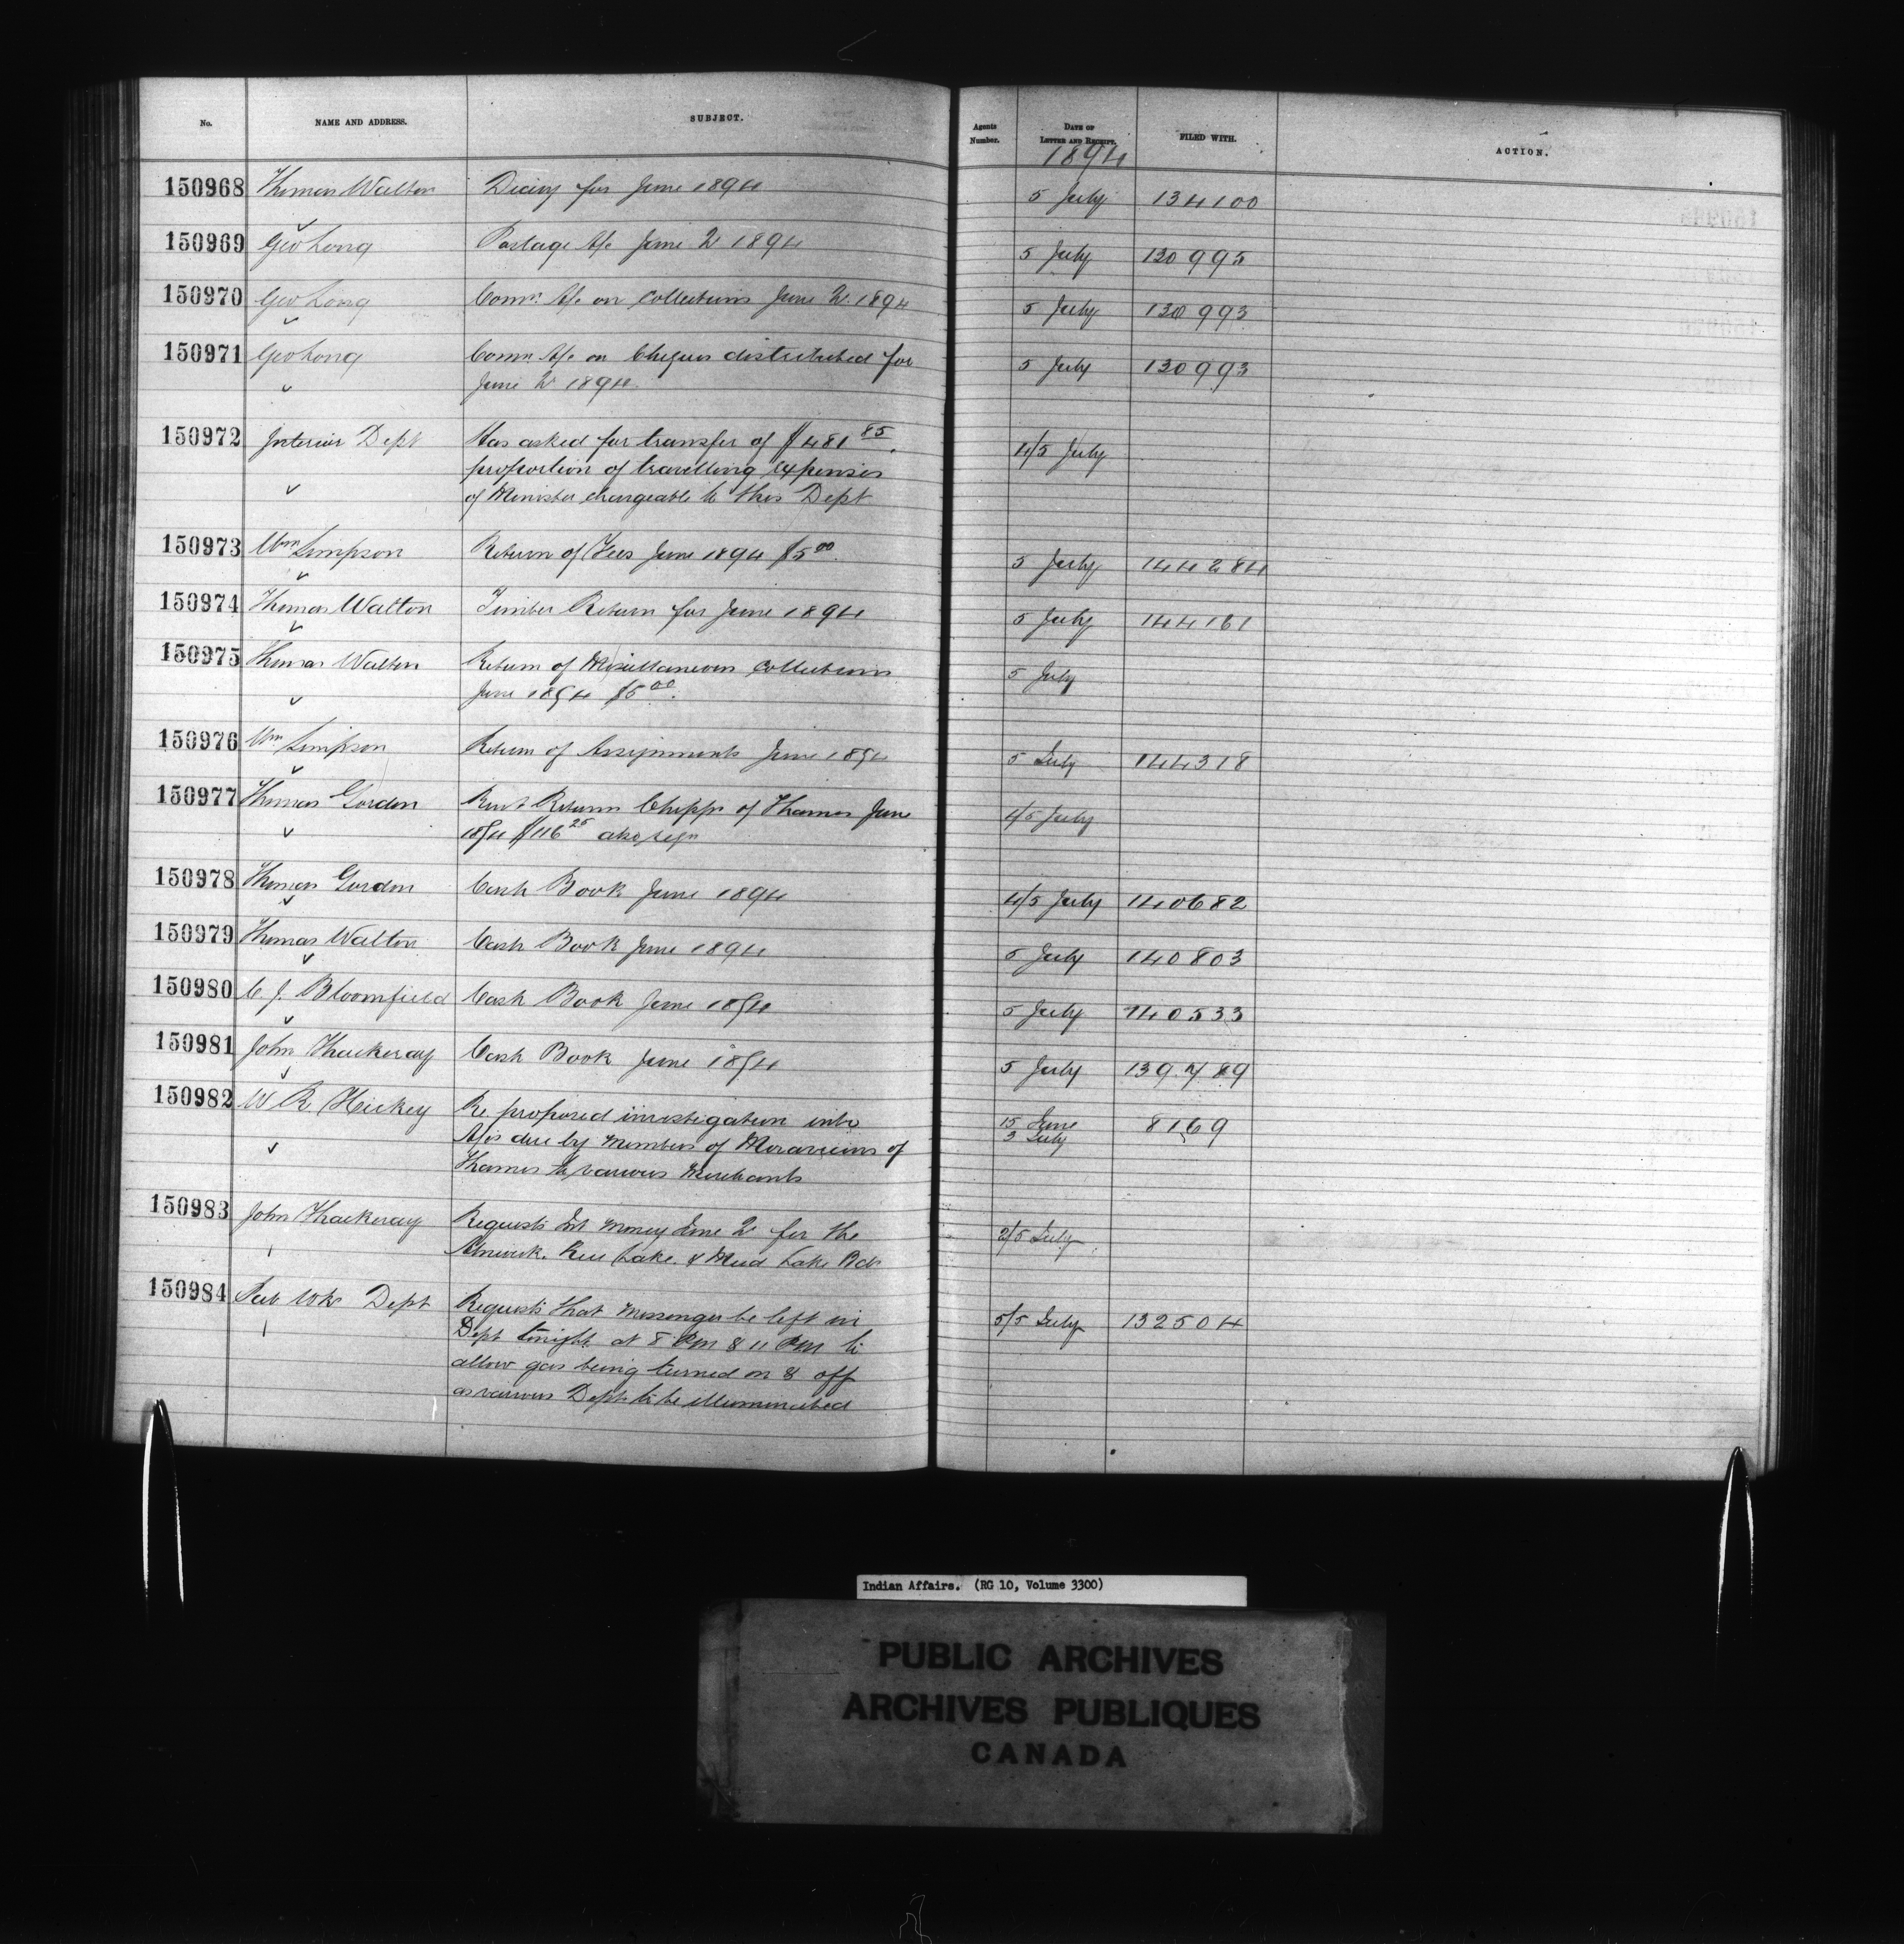 No. NAME AND ADDRESS. SUBJECT. Agents Number. DATE OF LETTER AND RECEIPT. FILED WITH. ACTION.
1894
150968 Thomas Walton Diary for June 1894 5 July 134100
150969 Geo Long Postage A/c June Qr 1894 5 July 120995
150970 Geo Long Comn. A/c on Collections June Qr 1894 5 July 130993
150971 Geo Long Comn A/c on Cheques distributed for 5 July 130993
June Qr 1894
150972 Interior Dept Has asked for transfer of $481 85 4/5 July
proportion of travelling expenses
of Minister chargeable to this Dept
150973 Wm Simpson Return of Fees June 1894 $5 00 5 July 144284
150974 Thomas Walton Timber Return for June 1894 5 July 144161
150975 Thomas Walton Return of Miscellaneous Collections 5 July
June 1894 $5 00
150976 Wm Simpson Return of Assignments June 1894 5 July 144318
150977 Thomas Gordon Rent Return Chipps of Thames June 4/5 July
1894 $116 25 also
150978 Thomas Gordon Cash Book June 1894 4/5 July 140682
150979 Thomas Walton Cash Book June 1894 5 July 140803
150980 C. J. Bloomfield Cash Book June 1894 5 July 140533
150981 John Thackeray Cash Book June 1894 5 July 139789
150982 W R Hickey Re proposed investigation into 15 June 8169
A/cs due by members of Moravians of 3 July
Thames to various Merchants
150983 John Thackeray Requests Int Money June Qr for the 2/5 July
Alnwick. Rice Lake. & Mud Lake Bds
150984 Pub Wks Dept Requests that messenger be left in 5/5 July 132504
Dept tonight at 8 PM & 11 PM to
allow gas being turned on & off
as various Depts to be illuminated
Indian Affairs. (RG 10, Volume 3300)
PUBLIC ARCHIVES
ARCHIVES PUBLIQUES
CANADA